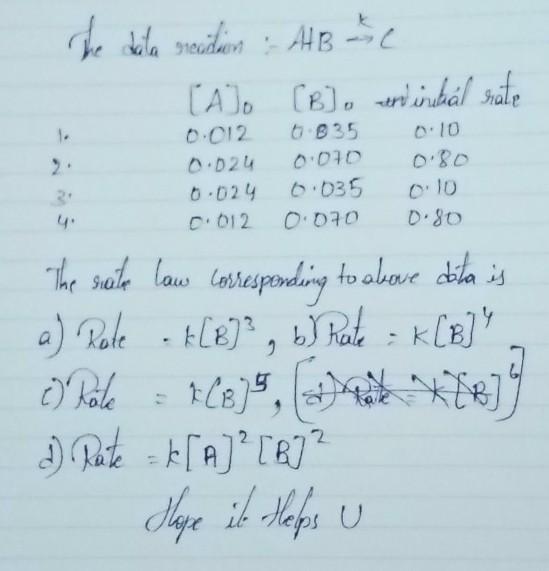 The data reaction :- A+B →k C
[A]₀ [B]₀ initial rate
1. 0.012 0.035 0.10
2. 0.024 0.070 0.80
3. 0.024 0.035 0.10
4. 0.012 0.070 0.80
The rate law corresponding to above data is
a) Rate = k[B]³, b) Rate = K[B]⁴
c) Rate = k[B]⁵, [d) Rate = K[B]⁶]
d) Rate = k[A]²[B]²
Hope it Helps U